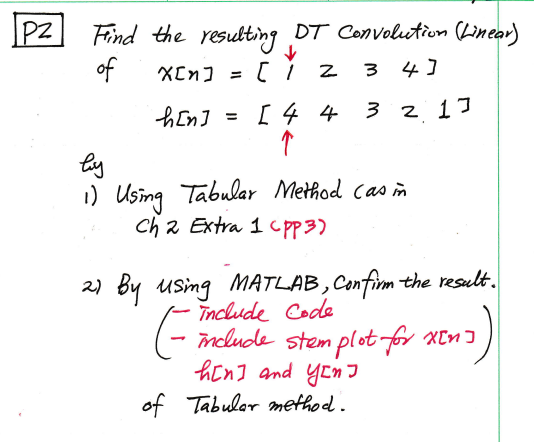 P2 Find the resulting DT Convolution (Linear)
of x[n] = [ 1 2 3 4 ]
h[n] = [ 4 4 3 2 1 ]
by
1) Using Tabular Method (as in
Ch 2 Extra 1 (pp3)
2) By using MATLAB, Confirm the result.
(- include Code
- include stem plot for x[n]
h[n] and y[n] )
of Tabular method.